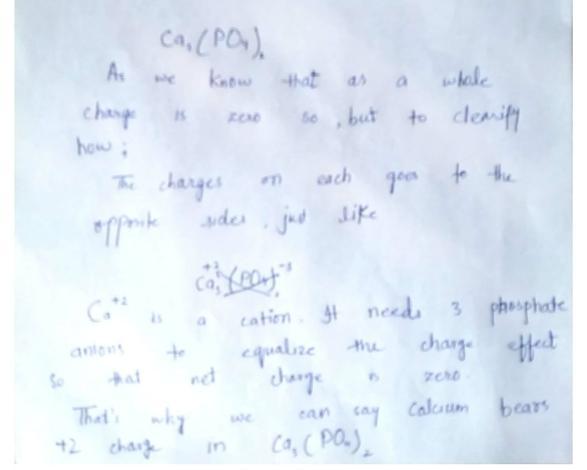 Ca₃(PO₄)₂
As we know that as a whole
charge is zero so, but to clearify
how;
The charges on each goes to the
opposite sides. just like
Ca₃⁺²(PO₄)₂⁻³
Ca⁺² is a cation. It needs 3 phosphate
anions to equalize the charge effect
so that net charge is zero.
That's why we can say Calcium bears
+2 charge in Ca₃(PO₄)₂